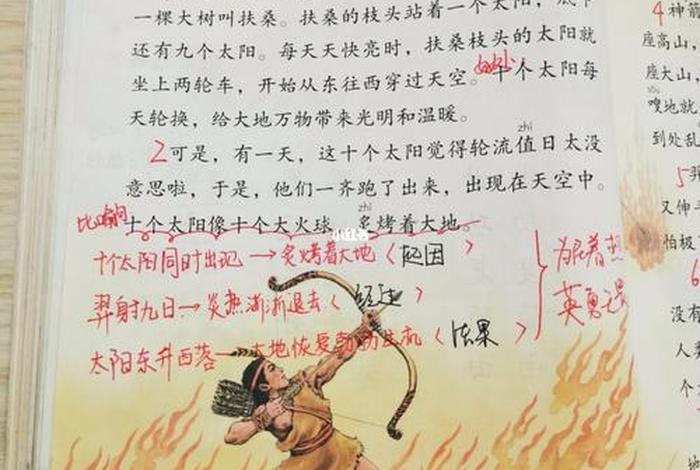 一棵大树叫扶桑。扶桑的枝头站着一个太阳，底下
还有九个太阳。每天天快亮时，扶桑枝头的太阳就
坐上两轮车，开始从东往西穿过天空。十个太阳每
天轮换，给大地万物带来光明和温暖。
zhí
2可是，有一天，这十个太阳觉得轮流值日太没
意思啦，于是，他们一齐跑了出来，出现在天空中。
zhì
比喻句 十个太阳像十个大火球，炙烤着大地。
小红书
十个太阳同时出现→炙烤着大地（起因）
羿射九日→炎热渐渐退去（经过）
太阳东升西落→大地恢复勃勃生机（结果）
英勇
4神箭
座高山，
座大山，
sōu
嗖地就
到处乱
5羿
又伸手
怕极
6
没有
人类
个